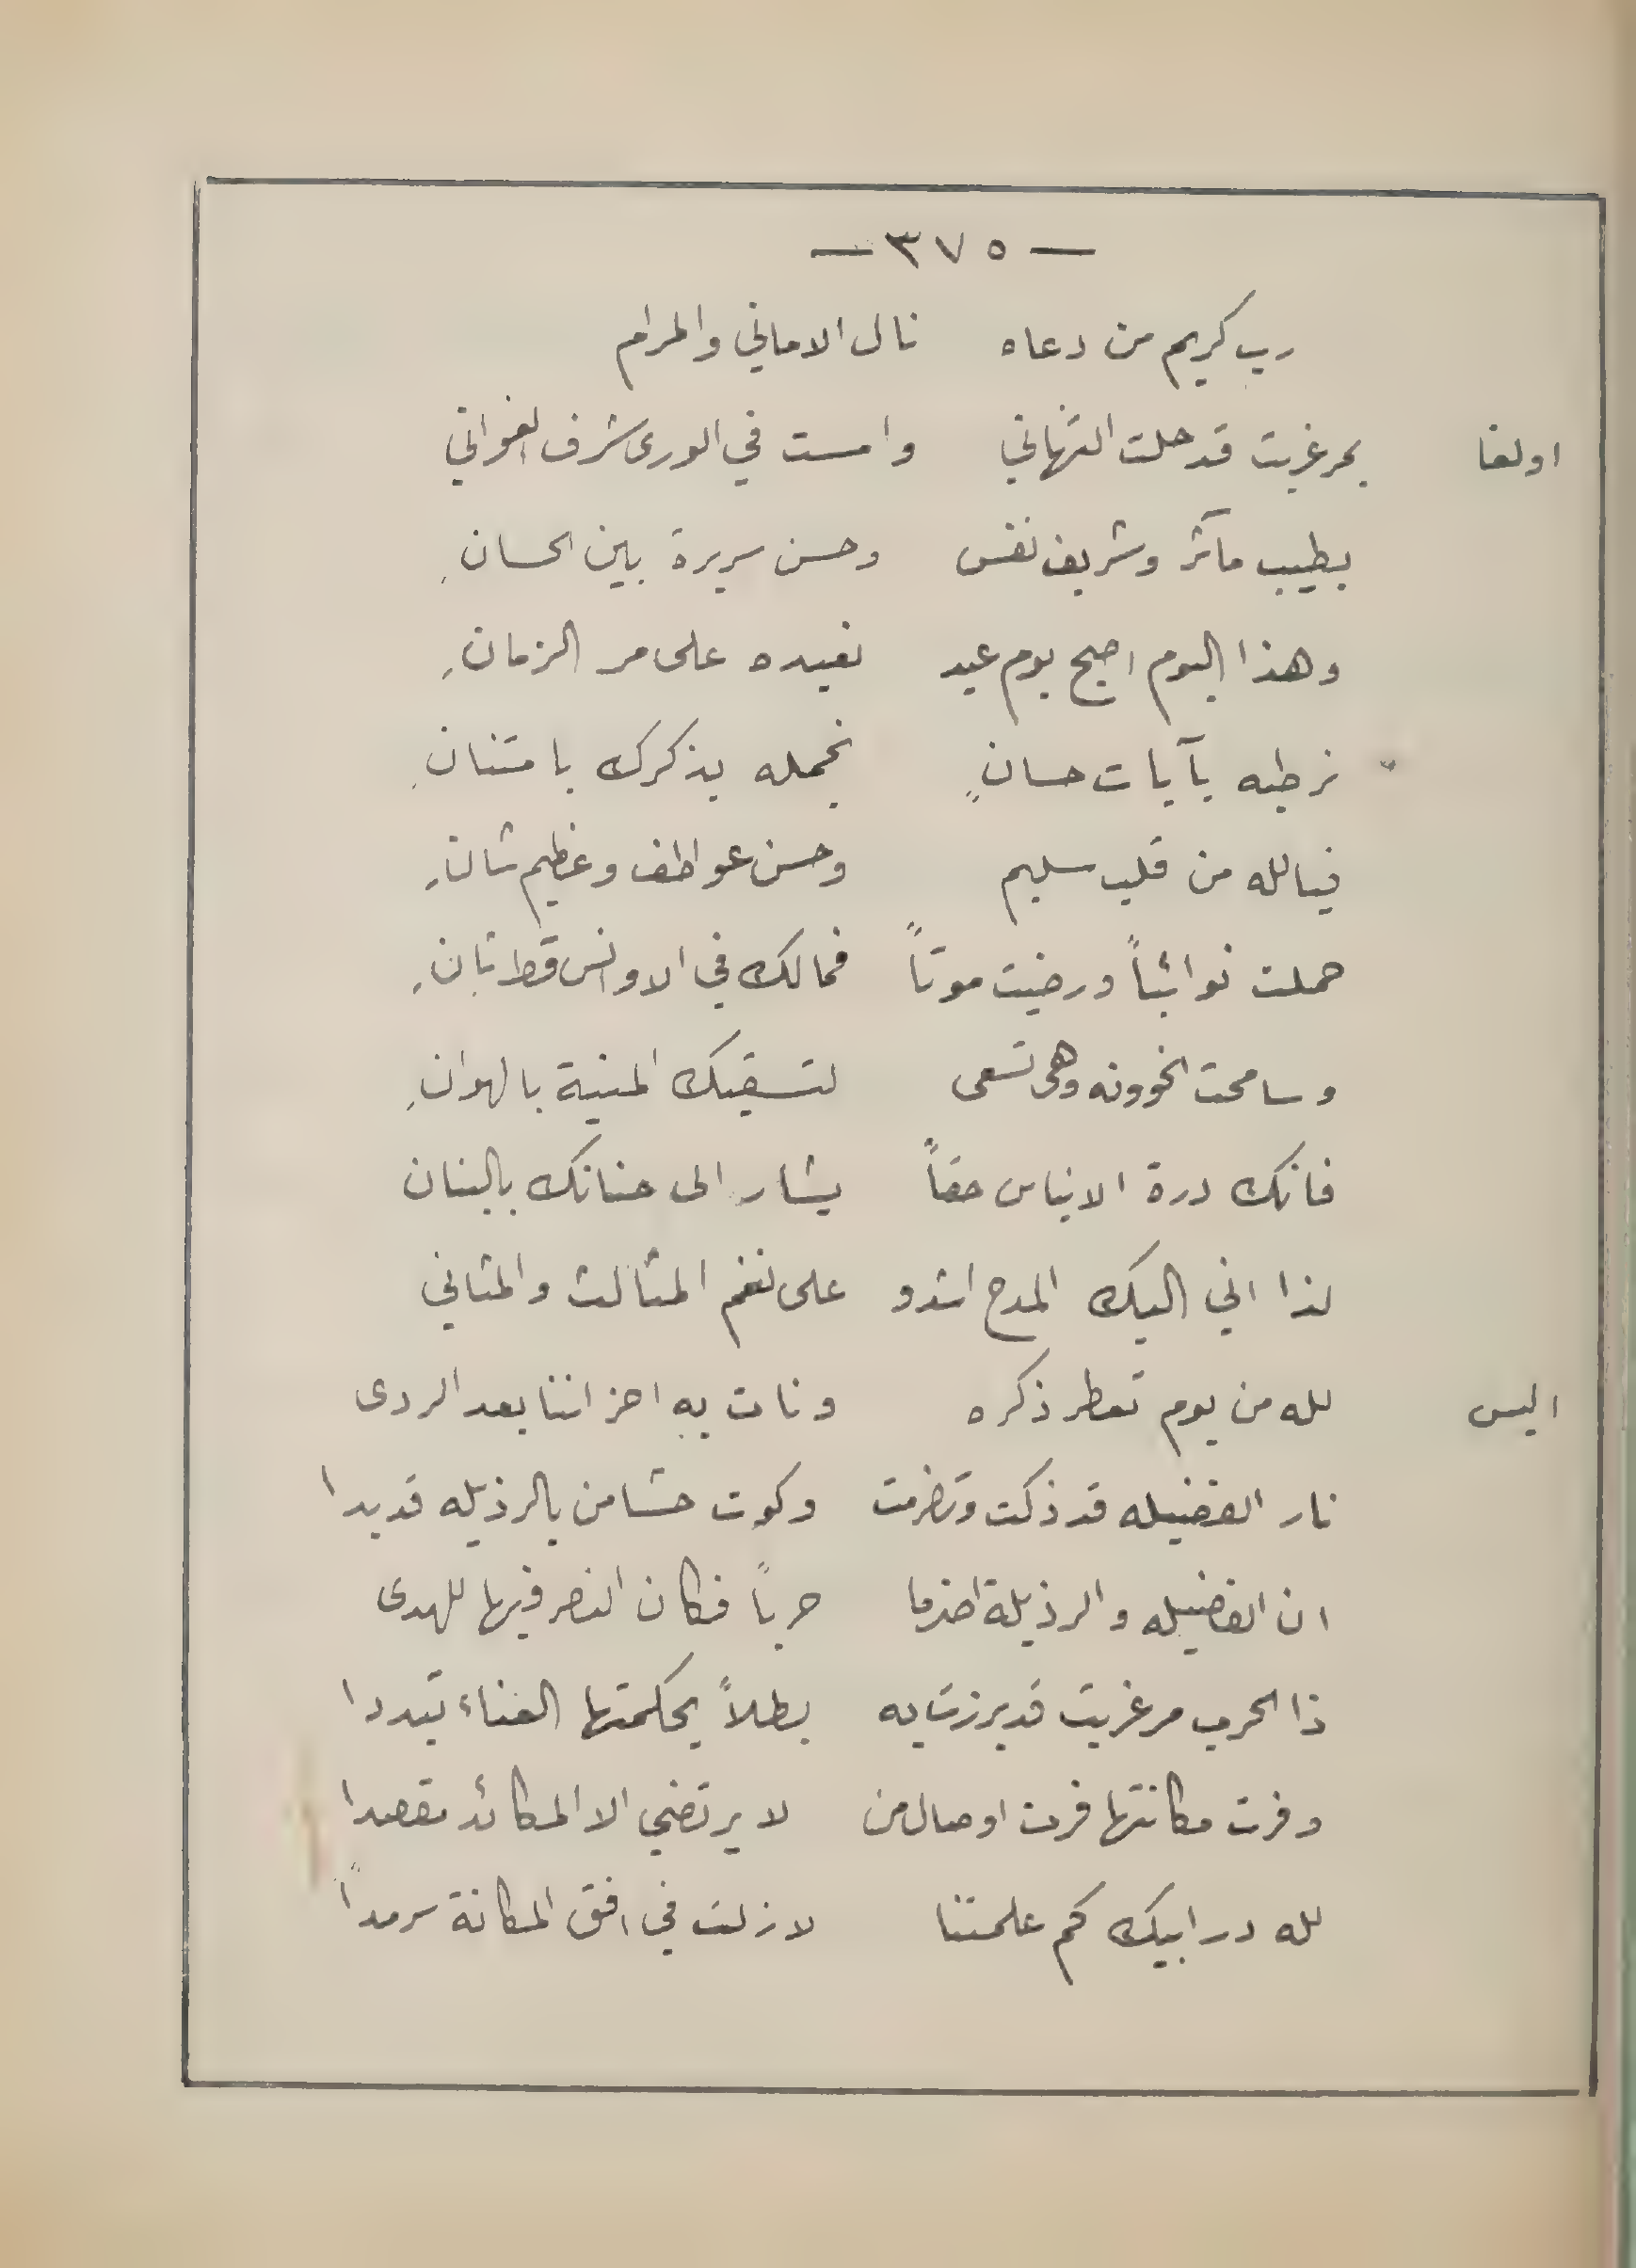 — ٣٧٥ —
رب كريم من دعاه نال الاماني والمرام
اولغا بمرغريت قد حلت التهاني وامست في الورى شرف الغواني
بطيب مآثر وشريف نفس وحسن سريرة بين الحسانِ
وهذا اليوم اصبح يوم عيد نعيده على مر الزمانِ
نرطبه بآيات حسانٍ نجمله بذكرك بامتنانِ
فيالله من قلب سليم وحسن عواطف وعظيم شانِ
حملت نوائباً ورضيت موتاً فمالك في الاوانس قط ثانِ
وسامحت الخوونه وهى تسعى لتسقيك المنية بالهوانِ
فانك درة الايناس حقاً يشار الى حنانك بالبنان
لذا اني اليك المدح اشدو على نغم المثالث والمثاني
اليس لله من يوم تعطر ذكره ونات به احزاننا بعد الردى
نار الفضيله قد ذكت وتضرمت وكوت حشا من بالرذيله قد بدا
ان الفضيله والرذيلة اضرما حرباً فكان النصر فيها للهدى
ذا الحرب مرغريت قد برزت به بطلاً بحكمتها العناء تبددا
وفرت مكانتها فرت اوصال من لا يرتضي الا المكائد مقصدا
لله در ابيك كم علمتنا لا زلت في افق المكانة سرمداً